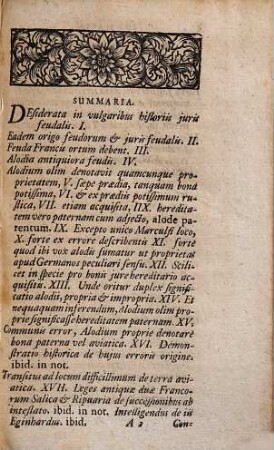 SUMMARIA.
DEsiderata in vulgaribus historiis juris
feudalis. I.
Eadem origo feudorum & juris feudalis. II.
Feuda Francis ortum debent. III.
Alodia antiquiora feudis. IV.
Alodium olim denotavit quamcunque pro-
prietatem, V. sæpe prædia, tanquam bona
potissima, VI. & ex prædiis potissimum ru-
stica, VII. etiam acquisita, IIX. heredita-
tem vero paternam cum adjecto, alode pa-
rentum. IX. Excepto unico Marculfi loco,
X. forte ex errore describentis XI. forte
quod ibi vox alodis sumatur ut proprietas
apud Germanos peculiari sensu. XII. Scili-
cet in specie pro bonis jure hereditario ac-
quisitis. XIII. Unde oritur duplex signifi-
catio alodii, propria & impropria. XIV. Et
nequaquam inferendum, alodium olim pro-
prie significasse hereditatem paternam. XV.
Communis error, Alodium proprie denotare
bona paterna vel aviatica. XVI. Demon-
stratio historica de hujus erroris origine.
ibid. in not.
Transitus ad locum difficillimum de terra avi-
atica. XVII. Leges antiquæ duæ Franco-
rum Salica & Ripuaria de successionibus ab
intestato. ibid. in not. Intelligendus de iis
Eginhardus. ibid.
A 2
Con-